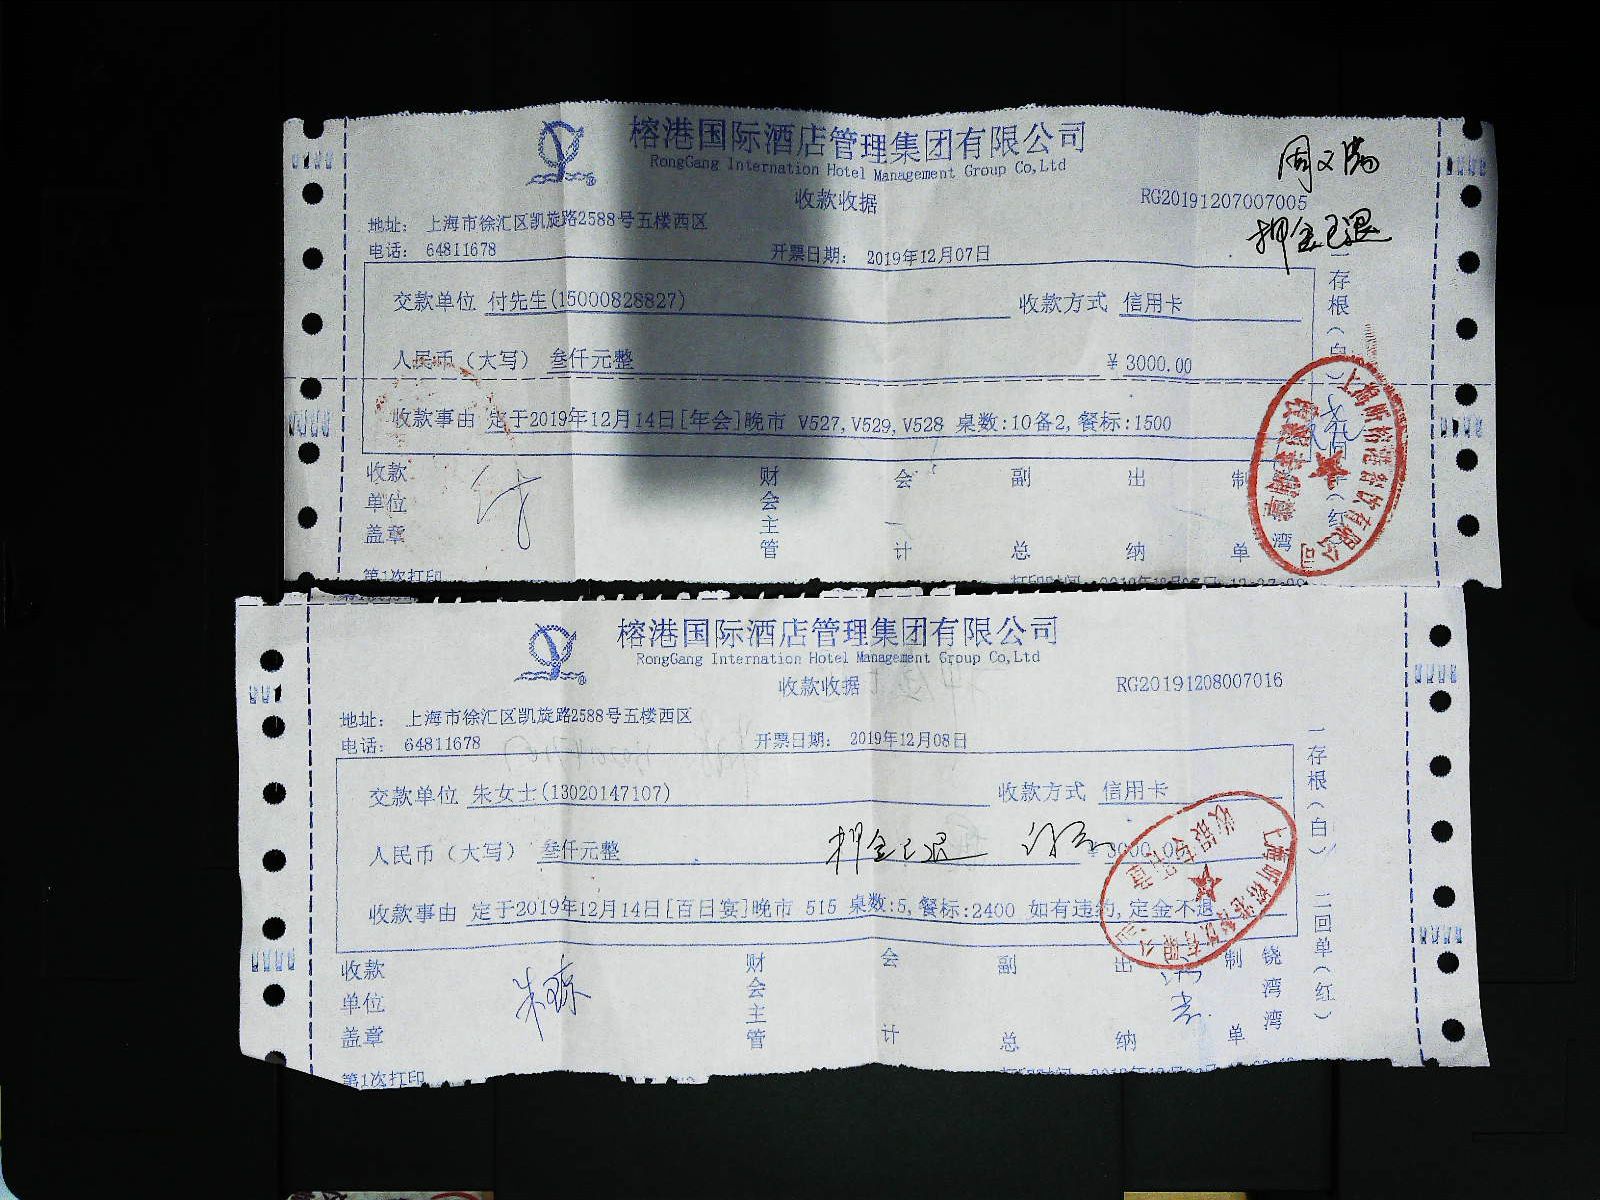 榕港国际酒店管理集团有限公司
RongGang Internation Hotel Management Group Co,Ltd
收款收据
RG20191207007005
押金已退
地址： 上海市徐汇区凯旋路2588号五楼西区
电话： 64811678
开票日期： 2019年12月07日
交款单位 付先生(15000828827)
收款方式 信用卡
人民币（大写） 叁仟元整
¥ 3000.00
收款事由 定于2019年12月14日[年会]晚市 V527,V529,V528 桌数:10备2,餐标:1500
收款单位盖章
财会主管
会计
副总
出纳
制单
湾
一存根(白)
回单(红)
第1次打印
榕港国际酒店管理集团有限公司
RongGang Internation Hotel Management Group Co,Ltd
收款收据
RG20191208007016
地址： 上海市徐汇区凯旋路2588号五楼西区
电话： 64811678
开票日期： 2019年12月08日
交款单位 朱女士(13020147107)
收款方式 信用卡
人民币（大写） 叁仟元整
押金已退
¥ 3000.00
收款事由 定于2019年12月14日[百日宴]晚市 515 桌数:5,餐标:2400 如有违约,定金不退
收款单位盖章
财会主管
会计
副总
出纳
制单
饶湾湾
一存根(白) 二回单(红)
第1次打印